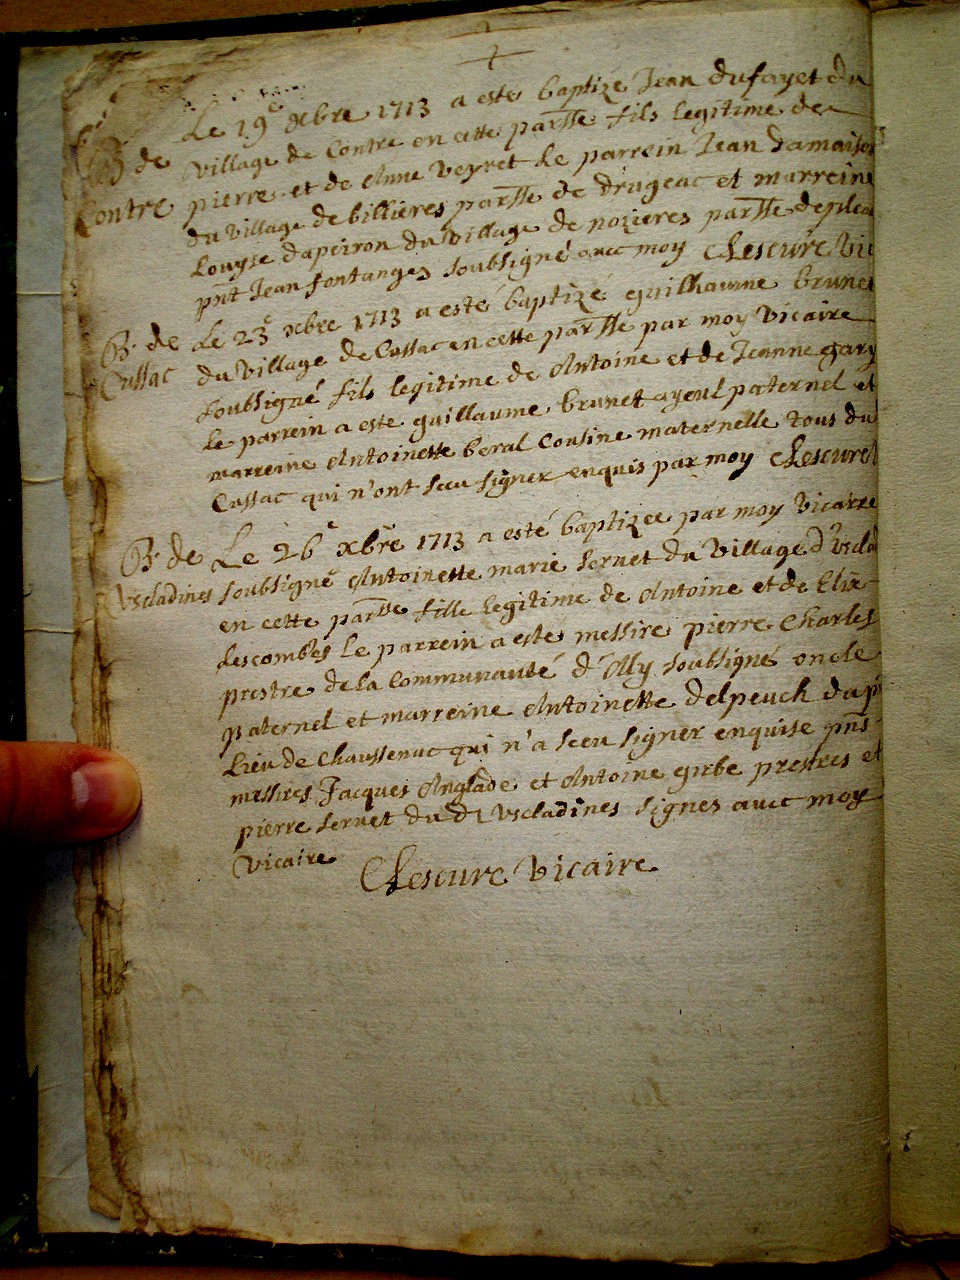 Le 19e xbre 1713 a esté baptizé Jean dufayet du
B. de village de Contre en cette parsse fils legitime de
Contre pierre et de Anne Veyret le parrein Jean damaison
du village de billieres parsse de drugeac et marreine
Louyse dapeiron du village de nozieres parsse de pleau
pnt Jean fontanges soubsigné avec moy CLescure Vic
B. de Le 23e xbre 1713 a esté baptizé guilhaume brunet
Cussac du village de Cussac en cette parsse par moy Vicaire
soubsigné fils legitime de Antoine et de Jeanne gary
le parrein a esté guillaume brunet ayeul paternel et
marreine Antoinette beral Cousine maternelle tous du
Cussac qui n'ont sceu signer enquis par moy CLescure V
B. de Le 26e xbre 1713 a esté baptizée par moy Vicaire
Uscladines soubsigné Antoinette marie sernet du village d'Uscla
en cette parsse fille legitime de Antoine et de Elie
descombes le parrein a esté messire pierre Charles
prestre de la Communauté d'Ally soubsigné oncle
paternel et marreine Antoinette delpeuch du p
Lieu de Chaussenac qui n'a sceu signer enquise pns
messires Jacques Anglade et Antoine girbe prestres et
pierre sernet du d Uscladines signes avec moy
Vicaire CLescure Vicaire